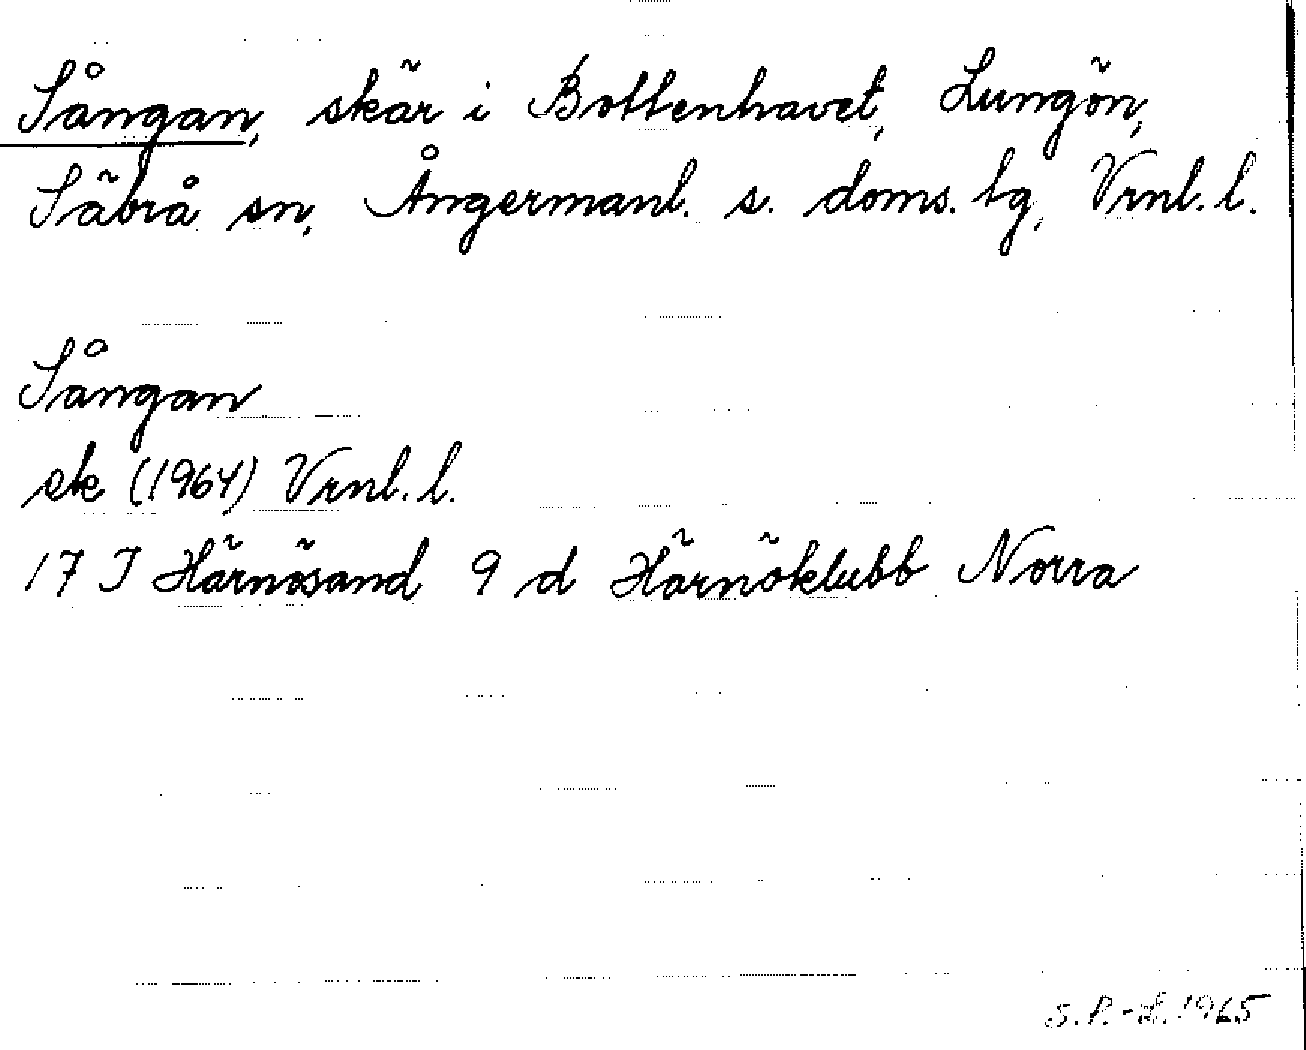 Sångan, skär i Bottenhavet, Lungön,
Säbrå sn, Ångermanl. s. doms. lg, Vrnl. l.
Sångan
sk (1964) Vrnl. l.
17 I Härnösand 9 d Härnöklubb Norra
S.P.-L. 1965